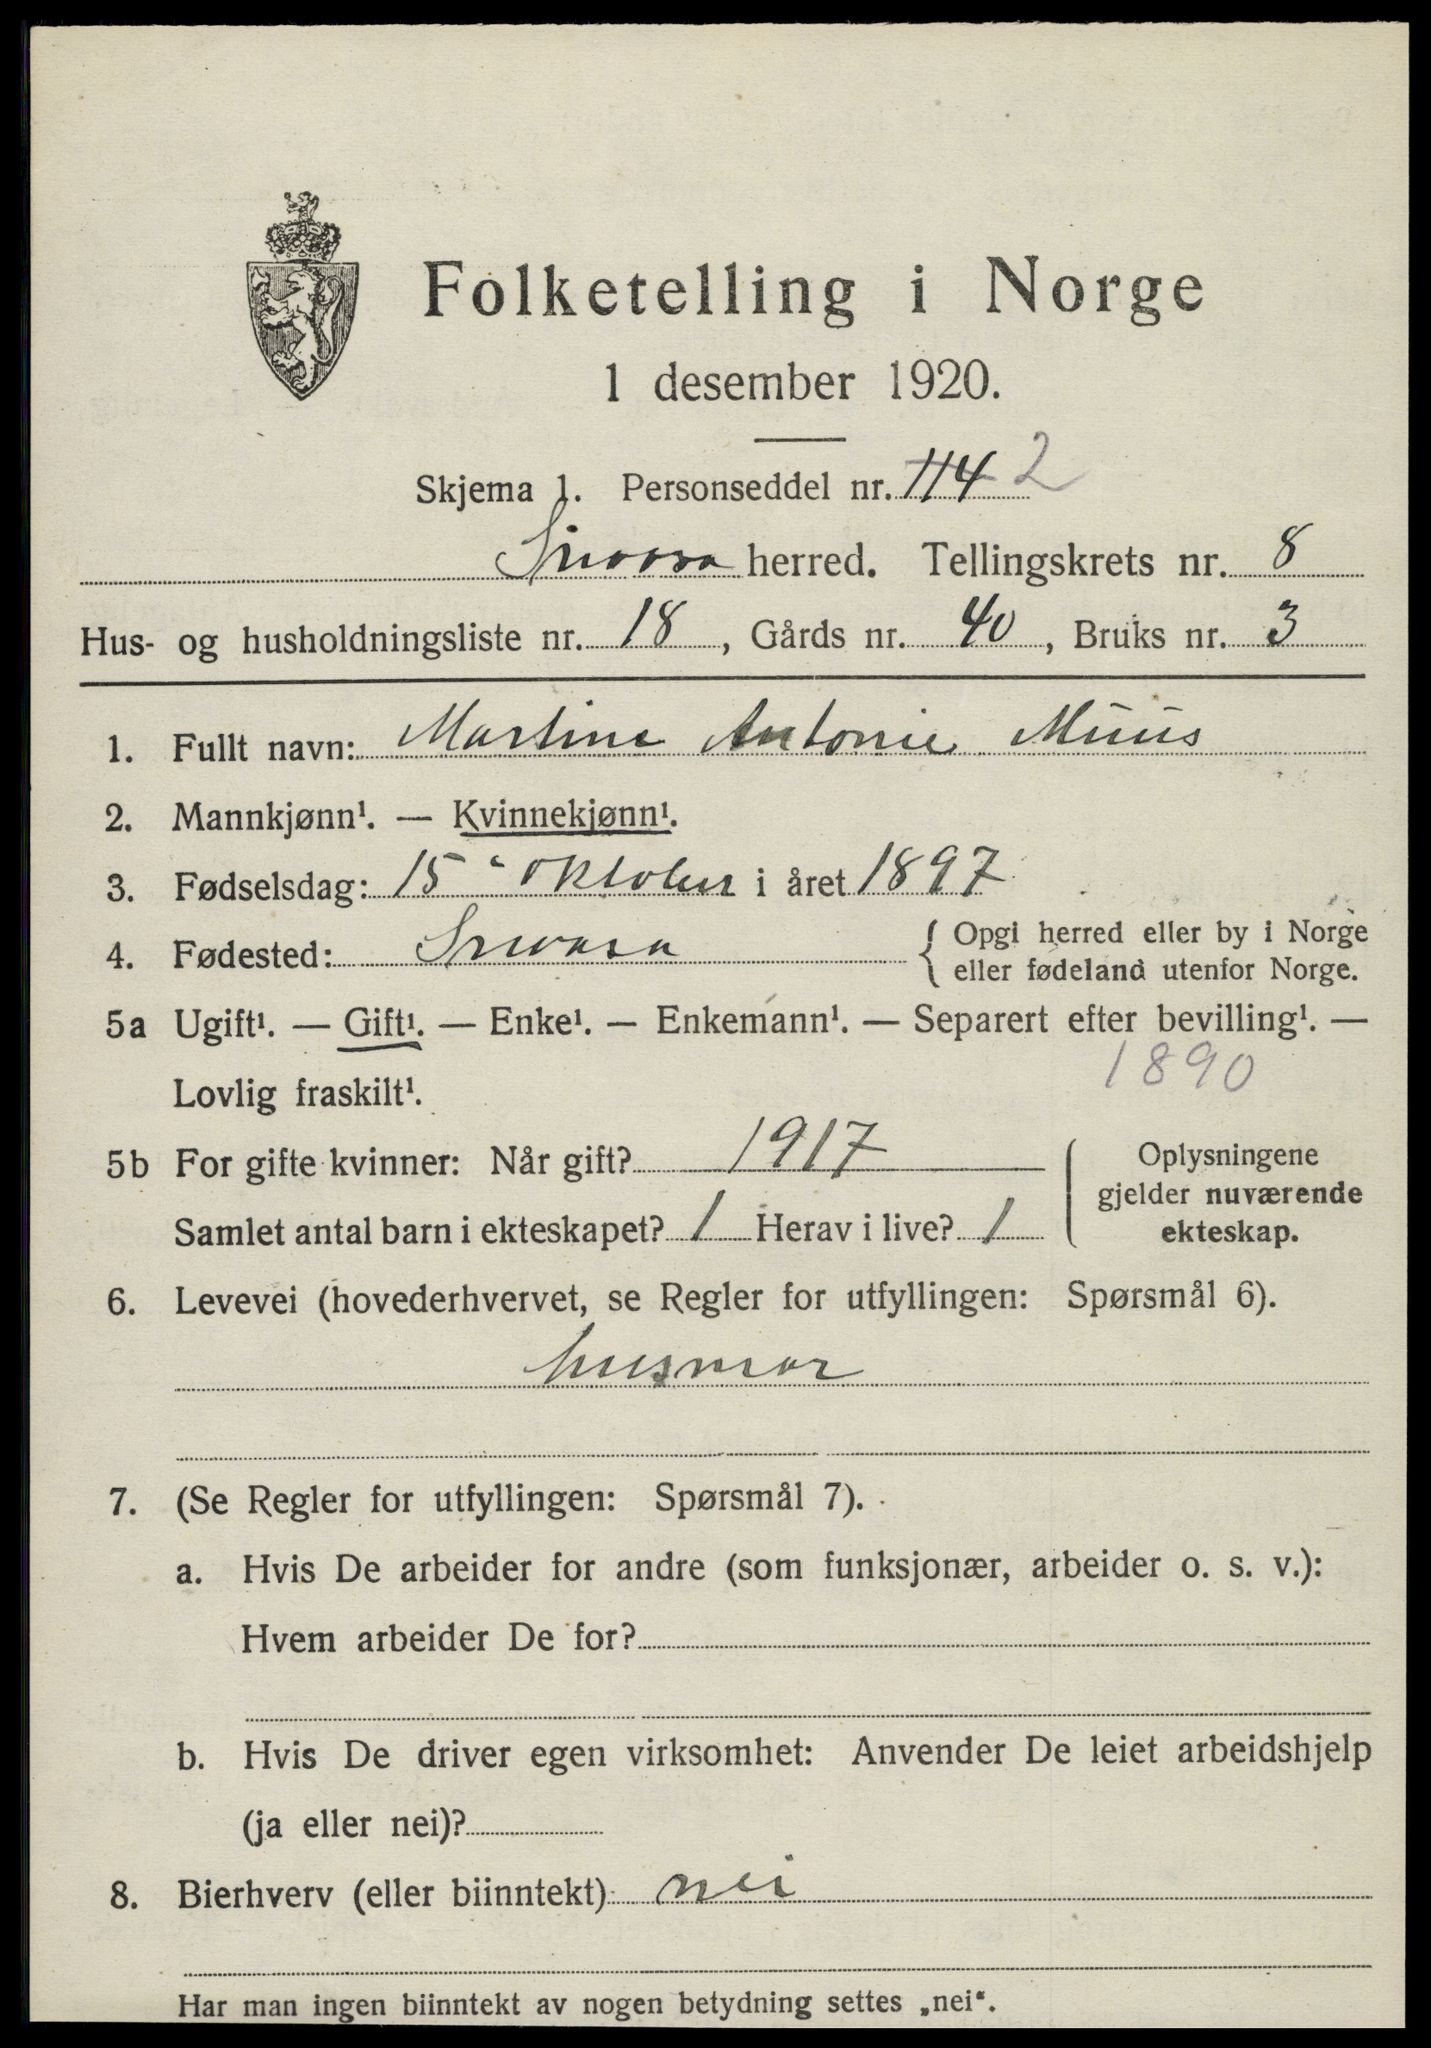 Folketelling i Norge
1 desember 1920.
Skjema 1. Personseddel nr. 114 2
Snaasa herred. Tellingskrets nr. 8
Hus- og husholdningsliste nr. 18, Gårds nr. 40, Bruks nr. 3
1. Fullt navn: Martine Antonie Muus
2. Mannkjønn¹. — Kvinnekjønn¹.
3. Fødselsdag: 15 oktober i året 1897
4. Fødested: Snaasa { Opgi herred eller by i Norge
eller fødeland utenfor Norge.
5a Ugift¹. — Gift¹. — Enke¹. — Enkemann¹. — Separert efter bevilling¹. —
Lovlig fraskilt¹. 1890
5b For gifte kvinner: Når gift? 1917
Samlet antal barn i ekteskapet? 1 Herav i live? 1
Oplysningene
gjelder nuværende
ekteskap.
6. Levevei (hovederhvervet, se Regler for utfyllingen: Spørsmål 6).
husmor
7. (Se Regler for utfyllingen: Spørsmål 7).
a. Hvis De arbeider for andre (som funksjonær, arbeider o. s. v.):
Hvem arbeider De for?
b. Hvis De driver egen virksomhet: Anvender De leiet arbeidshjelp
(ja eller nei)?
8. Bierhverv (eller biinntekt) nei
Har man ingen biinntekt av nogen betydning settes „nei“.